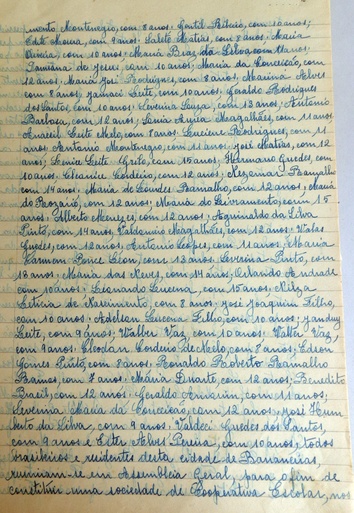 mento Montenegro, com 8 anos; Gentil Ribeiro, com 10 anos;
Edite Moura, com 9 anos; Salete Matias, com 8 anos; Maria
com 10 anos; Maria Braz da Silva, com 11 anos;
Damiana de Jesus, com 10 anos; Maria da Conceição, com
12 anos; Maria José Rodrigues, com 8 anos; Marina Alves
com 8 anos; Jamaci Leite, com 10 anos; Geraldo Rodrigues
dos Santos, com 10 anos; Severina Souza, com 13 anos; Antônio
Barbosa, com 12 anos; Sonia Magalhães, com 11 anos
Leite Melo, com 7 anos; Luciene Rodrigues, com 11
anos; Antonio Montenegro, com 11 anos; José Matias, com 12
anos; Sonia Leite Grilo, com 15 anos; Hermano Guedes, com
10 anos; Cleonice Cordeiro, com 12 anos; Ramalho
com 14 anos; Maria de Lourdes Ramalho, com 12 anos; Maria
do Rosário, com 12 anos; Maria do Livramento, com 15
anos; Alberto Menezes, com 12 anos; Aguinaldo da Silva
Pinto, com 14 anos; Valdemiro Magalhães, com 12 anos;
Guedes, com 12 anos; Antonio Lopes, com 11 anos; Maria
Carmem Ponce Léon, com 13 anos; Severina Pinto, com
13 anos; Maria das Neves, com 14 anos; Orlando Andrade
com 10 anos; Leonardo Lucena, com 15 anos; Nilza
Letícia do Nascimento, com 8 anos; José Joaquim Filho,
com 10 anos; Adelson Lucena Filho, com 10 anos; Janduy
Leite, com 9 anos; Walber Vaz, com 10 anos; Vaz,
com 9 anos; Cleodon Cordeiro de Melo, com 8 anos; Edson
Gomes Pinto, com 8 anos; Ronaldo Roberto Ramalho
Ramos, com 7 anos; Maria Duarte, com 12 anos; Benedito
Brasil, com 12 anos; Geraldo Amorim, com 11 anos;
Severina Maria da Conceição, com 12 anos; José Hum
berto da Silva, com 9 anos; Valdeci Guedes dos Santos,
com 9 anos e Ester Alves Pereira, com 10 anos; todos
brasileiros e residentes desta cidade de Bananeiras,
reuniram-se em Assembleia Geral, para o fim de
constituir uma sociedade de Cooperativa Escolar, nos